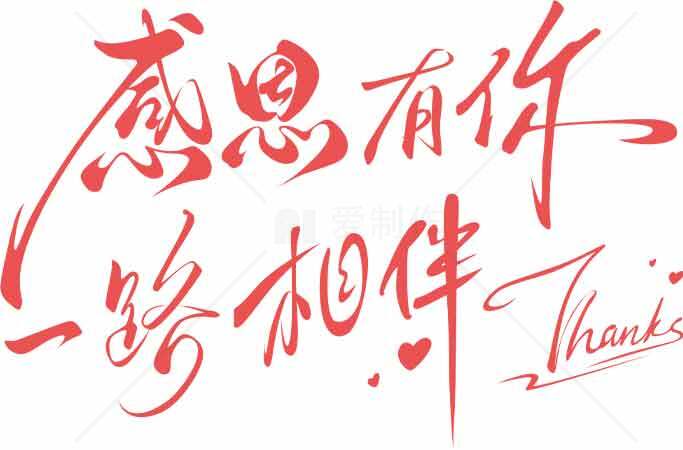 感恩有你
一路相伴
Thanks
爱制作